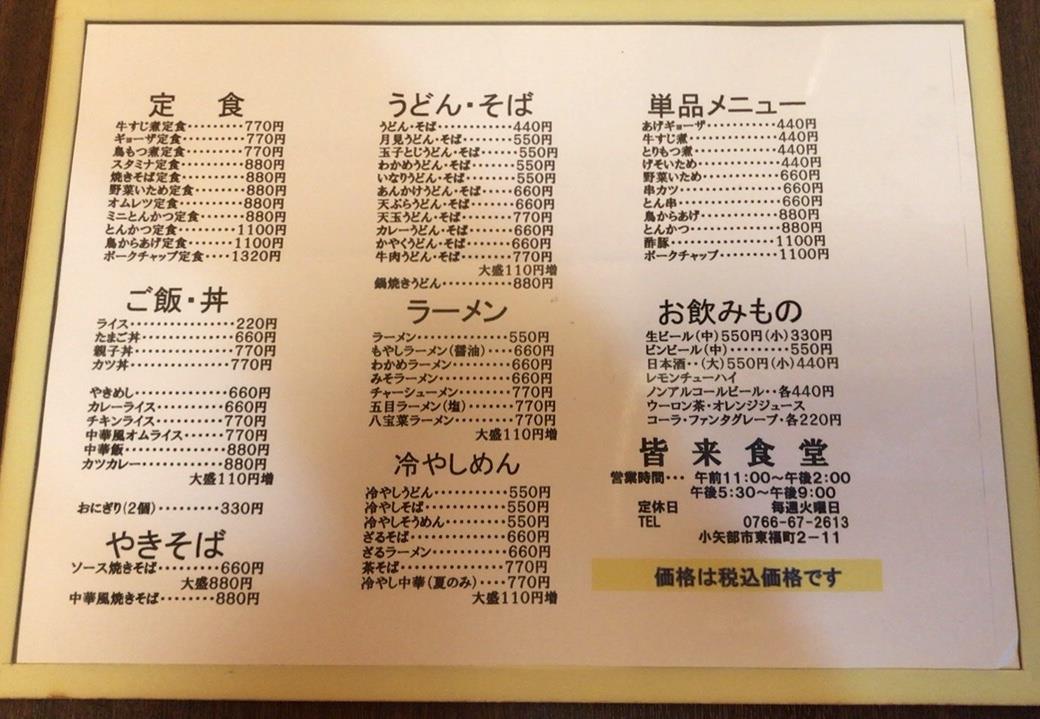 定　食
牛すじ煮定食・・・・・・・・・770円
ギョーザ定食・・・・・・・・・770円
鳥もつ煮定食・・・・・・・・・770円
スタミナ定食・・・・・・・・・880円
焼きそば定食・・・・・・・・・880円
野菜いため定食・・・・・・・・880円
オムレツ定食・・・・・・・・・880円
ミニとんかつ定食・・・・・・880円
とんかつ定食・・・・・・・・・1100円
鳥からあげ定食・・・・・・・1100円
ポークチャップ定食・・・・1320円
ご飯・丼
ライス・・・・・・・・・・・・・・・220円
たまご丼・・・・・・・・・・・・・660円
親子丼・・・・・・・・・・・・・・・770円
カツ丼・・・・・・・・・・・・・・・770円
やきめし・・・・・・・・・・・・・660円
カレーライス・・・・・・・・・・660円
チキンライス・・・・・・・・・・770円
中華風オムライス・・・・・・770円
中華飯・・・・・・・・・・・・・・・880円
カツカレー・・・・・・・・・・・・880円
大盛110円増
おにぎり(2個)・・・・・・・・・330円
やきそば
ソース焼きそば・・・・・・・・・660円
大盛880円
中華風焼きそば・・・・・・・・880円
うどん・そば
うどん・そば・・・・・・・・・・・440円
月見うどん・そば・・・・・・・550円
玉子とじうどん・そば・・・・・550円
わかめうどん・そば・・・・・・550円
いなりうどん・そば・・・・・・・550円
あんかけうどん・そば・・・・・660円
天ぷらうどん・そば・・・・・・660円
天玉うどん・そば・・・・・・・770円
カレーうどん・そば・・・・・・660円
かやくうどん・そば・・・・・・660円
牛肉うどん・そば・・・・・・・770円
大盛110円増
鍋焼きうどん・・・・・・・・・・880円
ラーメン
ラーメン・・・・・・・・・・・・・550円
もやしラーメン(醤油)・・・・660円
わかめラーメン・・・・・・・・・660円
みそラーメン・・・・・・・・・・・660円
チャーシューメン・・・・・・・・770円
五目ラーメン(塩)・・・・・・・770円
八宝菜ラーメン・・・・・・・・・770円
大盛110円増
冷やしめん
冷やしうどん・・・・・・・・・・・550円
冷やしそば・・・・・・・・・・・・550円
冷やしそうめん・・・・・・・・・550円
ざるそば・・・・・・・・・・・・・660円
ざるラーメン・・・・・・・・・・・660円
茶そば・・・・・・・・・・・・・・・770円
冷やし中華(夏のみ)・・・・770円
大盛110円増
単品メニュー
あげギョーザ・・・・・・・・・・440円
牛すじ煮・・・・・・・・・・・・・440円
とりもつ煮・・・・・・・・・・・・440円
げそいため・・・・・・・・・・・・440円
野菜いため・・・・・・・・・・・・660円
串カツ・・・・・・・・・・・・・・・660円
とん串・・・・・・・・・・・・・・・660円
鳥からあげ・・・・・・・・・・・・880円
とんかつ・・・・・・・・・・・・・880円
酢豚・・・・・・・・・・・・・・・・1100円
ポークチャップ・・・・・・・・・1100円
お飲みもの
生ビール(中)550円(小)330円
ビンビール(中)・・・・・・・・・550円
日本酒・・(大)550円(小)440円
レモンチューハイ
ノンアルコールビール・・各440円
ウーロン茶・オレンジジュース
コーラ・ファンタグレープ・各220円
皆来食堂
営業時間・・・午前11:00～午後2:00
午後5:30～午後9:00
定休日　毎週火曜日
TEL　0766-67-2613
小矢部市東福町2－11
価格は税込価格です